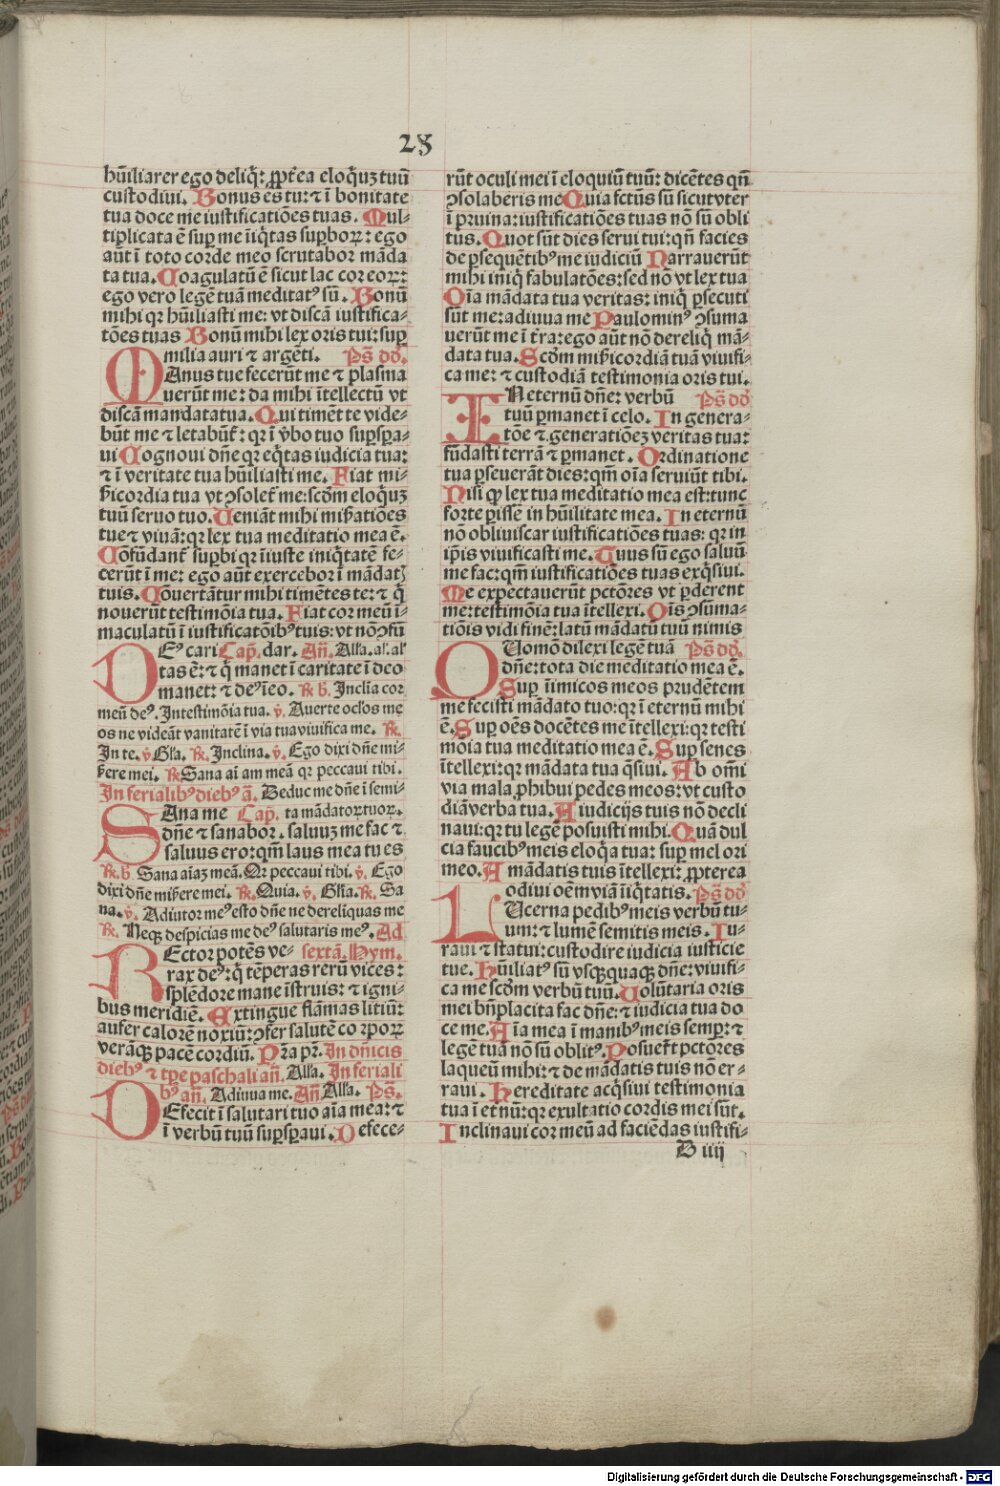 28
hūiliarer ego deliq̄: ꝓpt̄ea eloq̄uꝫ tuū
custodiui. Bonus es tu: ⁊ ī bonitate
tua doce me iustificatiōes tuas. Mul-
tiplicata ē sup me īiq̄tas supboꝝ: ego
aūt ī toto corde meo scrutabor māda
ta tua. Coagulatū ē sicut lac cor eoꝝ:
ego vero legē tuā meditatꝰ sū. Bonū
mihi qꝛ hūiliasti me: vt discā iustifica-
tōes tuas Bonū mihi lex oris tui: suꝑ
milia auri ⁊ argēti. Ps̄ dd̄.
MAnus tue fecerūt me ⁊ plasma
uerūt me: da mihi ītellectū vt
discā mandata tua. Qui timēt te vide-
būt me ⁊ letabūt̄: qꝛ ī v̄bo tuo supspa-
ui Cognoui dn̄e qꝛ eq̄tas iudicia tua:
⁊ ī veritate tua hūiliasti me. Fiat mi-
s̄icordia tua vt ↄ̄solet̄ me: scd̄m eloq̄uꝫ
tuū seruo tuo. Veniāt mihi mis̄atiōes
tue ⁊ viuā: qꝛ lex tua meditatio mea ē.
Cōfūdant̄ supbi qꝛ īiuste iniq̄tatē fe-
cerūt ī me: ego aūt exercebor ī mādat̄
tuis. Cōuertātur mihi timētes te: ⁊ q̄
nouerūt testimōia tua. Fiat cor meū ī-
maculatū ī iustificatōibꝰ tuis: vt nō ↄ̄fū
DEꝰ cari Cap̄. dar. An̄. Alla. al. al
tas ē: ⁊ q̄ manet ī caritate ī deo
manet: ⁊ deꝰ ī eo. ℟ b̄. Inclīa cor
meū deꝰ. In testimōia tua. ℣. Auerte oclōs me
os ne videāt vanitatē ī via tua viuifica me. ℟.
In te. ℣ Gl̄a. ℟. Inclina. ℣. Ego dixi dn̄e mi-
s̄ere mei. ℟ Sana aīam meā qꝛ peccaui tibi.
In ferialibꝰ diebꝰ ā. Deduc me dn̄e ī semi-
SAna me Cap̄. ta mādatoꝝ tuoꝝ.
dn̄e ⁊ sanabor. saluuꝫ me fac ⁊
saluus ero: qm̄ laus mea tu es
℟. b̄. Sana aīaꝫ meā. Qꝛ peccaui tibi. ℣. Ego
dixi dn̄e mis̄ere mei. ℟. Quia. ℣. Gl̄ia. ℟. Sa
na. ℣. Adiutor meꝰ esto dn̄e ne derelīquas me
℟. Neqꝫ despicias me deꝰ salutaris meꝰ. Ad
REctor potēs ve- sextā. Hym̄.
rax deꝰ: q̄ tēperas rerū vices:
splēdore mane īstruis: ⁊ igni-
bus meridiē. Extingue flāmas litiū:
aufer calorē noxiū: ↄ̄fer salutē corpoꝝ
verāqꝫ pacē cordiū. Pr̄a pr̄. In dn̄icis
diebꝰ ⁊ tꝑe paschali an̄. Alla. In feriali
bꝰ an̄. Adiuua me. An̄. Alla. Ps̄.
DEfecit ī salutari tuo aīa mea: ⁊
ī verbū tuū supspaui. Defece-
rūt oculi mei ī eloquiū tuū: dicētes qn̄
ↄ̄solaberis me Quia fctūs sū sicut vter
ī pruina: iustificatiōes tuas nō sū obli
tus. Quot sūt dies serui tui: qn̄ facies
de ꝑsequētibꝰ me iudiciū Narrauerūt
mihi iniq̄ fabulatōes: sed nō vt lex tua
Oīa mādata tua veritas: iniq̄ ꝑsecuti
sūt me: adiuua me Paulominꝰ ↄ̄suma
uerūt me ī t̄ra: ego aūt nō dereliq̄ mā-
data tua. Scd̄m mis̄icordiā tuā viuifi-
ca me: ⁊ custodiā testimonia oris tui.
IN eternū dn̄e: verbū Ps̄ dd̄
tuū ꝑmanet ī celo. In genera-
tōe ⁊ generationeꝫ veritas tua:
fūdasti terrā ⁊ ꝑmanet. Ordinatione
tua ꝑseuerāt dies: qm̄ oīa seruiūt tibi.
Nisi ꝙ lex tua meditatio mea est: tunc
forte ꝑissē in hūilitate mea. In eternū
nō obliuiscar iustificatiōes tuas: qꝛ in
ip̄is viuificasti me. Tuus sū ego saluū
me fac: qm̄ iustificatiōes tuas exq̄siui.
Me expectauerūt pctōres vt ꝑderent
me: testimōia tua ītellexi. Oīs ↄ̄suma-
tiōis vidi finē: latū mādatū tuū nimis
QUomō dilexi legē tuā Ps̄ dd̄.
dn̄e: tota die meditatio mea ē.
Suꝑ īimicos meos prudētem
me fecisti mādato tuo: qꝛ ī eternū mihi
ē. Suꝑ oēs docētes me ītellexi: qꝛ testi
mōia tua meditatio mea ē. Suꝑ senes
ītellexi: qꝛ mādata tua q̄siui. Ab om̄i
via mala ꝓhibui pedes meos: vt custo
diā verba tua. A iudicijs tuis nō decli
naui: qꝛ tu legē posuisti mihi. Quā dul
cia faucibꝰ meis eloq̄a tua: suꝑ mel ori
meo. A mādatis tuis ītellexi: ꝓpterea
odiui oēm viā īiq̄tatis. Ps̄ dd̄
LUcerna pedibꝰ meis verbū tu-
um: ⁊ lumē semitis meis. Iu-
raui ⁊ statui: custodire iudicia iusticie
tue. Hūiliatꝰ sū vsqꝫquaqꝫ dn̄e: viuifi-
ca me scd̄m verbū tuū. Volūtaria oris
mei bn̄placita fac dn̄e: ⁊ iudicia tua do
ce me. Aīa mea ī manibꝰ meis semꝑ: ⁊
legē tuā nō sū oblitꝰ. Posuert̄ pctōres
laqueū mihi: ⁊ de mādatis tuis nō er-
raui. Hereditate acq̄siui testimonia
tua ī et̄nū: qꝛ exultatio cordis mei sūt.
Inclinaui cor meū ad faciēdas iustifi-
B iiij
Digitalisierung gefördert durch die Deutsche Forschungsgemeinschaft - DFG